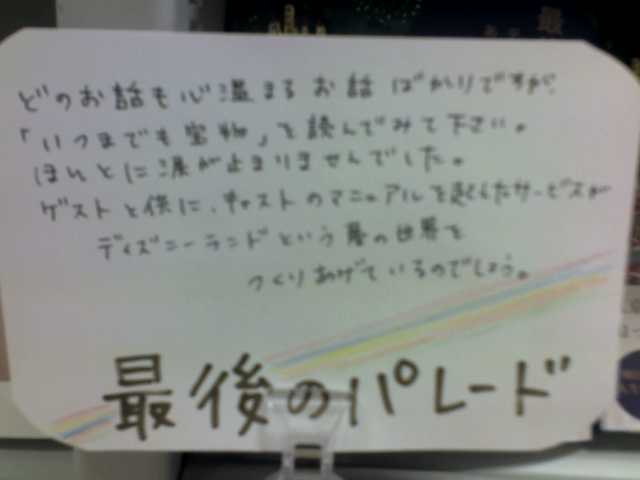 どのお話も心温まるお話ばかりですが、
「いつまでも宝物」を読んでみて下さい。
ほんとに涙が止まりませんでした。
ゲストと供に、キャストのマニュアルを超えたサービスが
ディズニーランドという夢の世界を
つくりあげているのでしょう。
最後のパレード